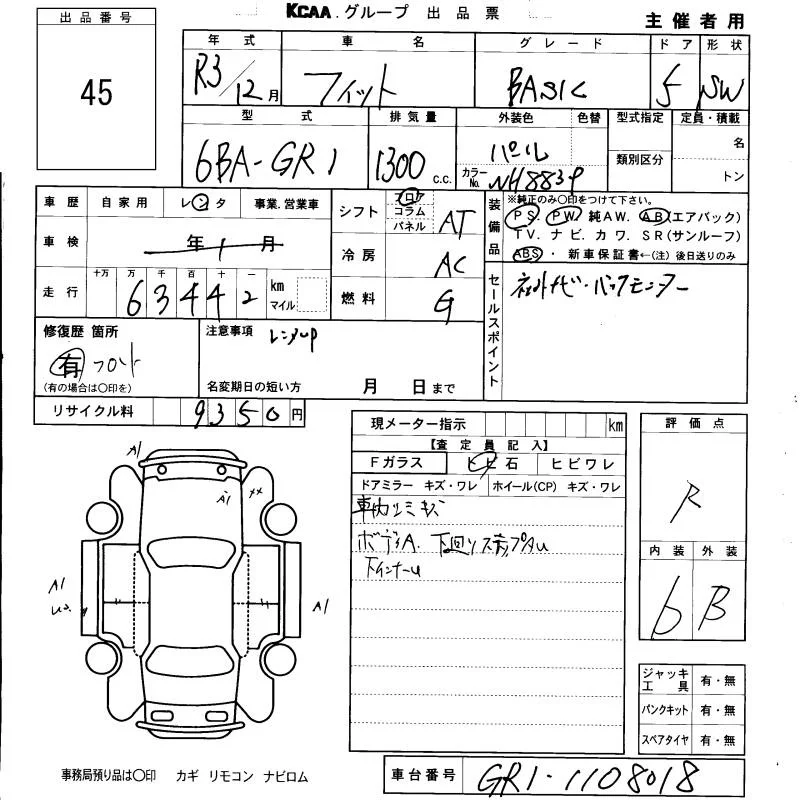 KCAA グループ 出品票
主催者用
出品番号
45
年式 車名 グレード ドア 形状
R3/12月 フィット BASIC 5 SW
型式 排気量 外装色 色替 型式指定 定員・積載
6BA-GR1 1300 c.c. パール 類別区分 名
カラーNo. NH883P トン
車歴 自家用 レンタ 事業.営業車
車検 年 1 月
走行 十万 万 千 百 十 一 km マイル
63442
シフト フロア コラム パネル AT
冷房 AC
燃料 G
装備品 ※純正のみ〇印をつけて下さい。
PS. PW. 純AW. AB(エアバック)
TV. ナビ. カワ. SR(サンルーフ)
ABS・新車保証書←(注) 後日送りのみ
セールスポイント 社外ナビ・バックモニター
修復歴 箇所
有 フロント
(有の場合は〇印を)
注意事項 レンタup
名変期日の短い方 月 日まで
リサイクル料 9350円
現メーター指示 km
【査定員記入】
Fガラス ヒ 石 ヒビワレ
ドアミラー キズ・ワレ ホイール(CP) キズ・ワレ
車内シミキズ
ボディA. 下廻りステップタU
下インナーU
A1
A1 ××
A1
U2
A1
評価点
R
内装 外装
b B
ジャッキ工具 有・無
パンクキット 有・無
スペアタイヤ 有・無
事務局預り品は〇印 カギ リモコン ナビロム
車台番号 GR1-1108018